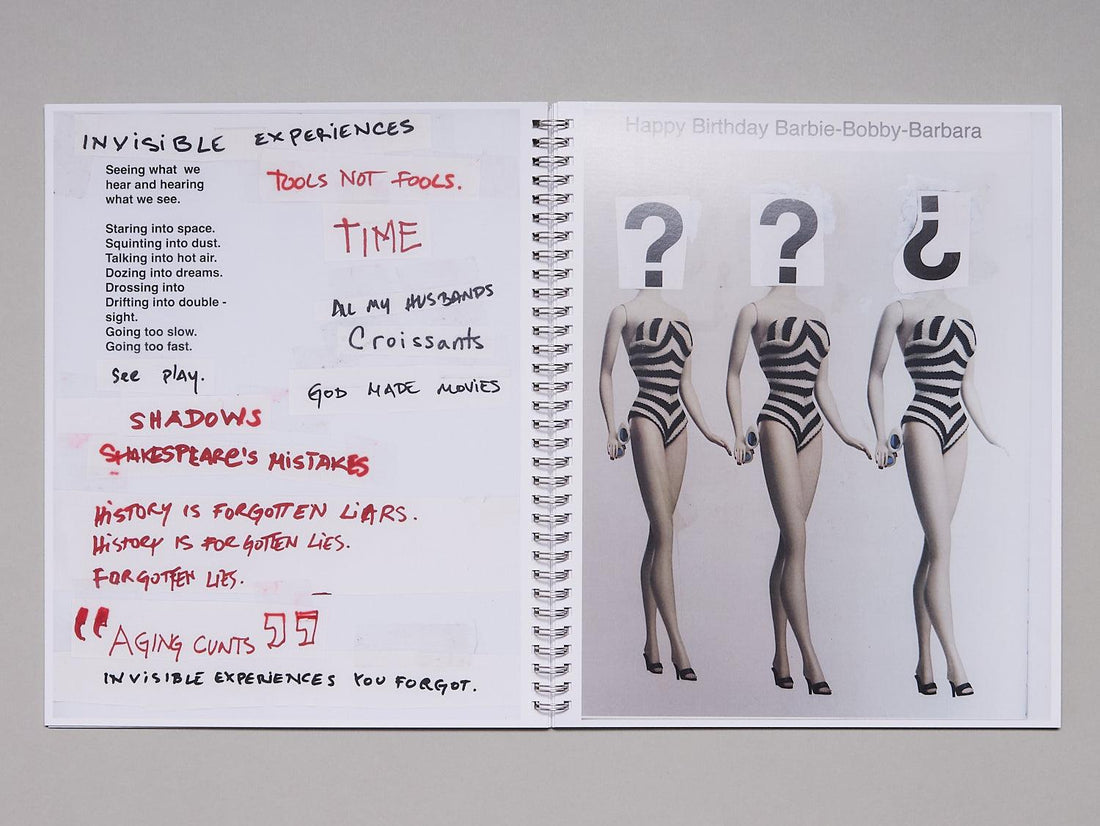 INVISIBLE EXPERIENCES
Seeing what we
hear and hearing
what we see.
TOOLS NOT FOOLS.
Staring into space.
Squinting into dust.
Talking into hot air.
Dozing into dreams.
Drossing into
Drifting into double -
sight.
Going too slow.
Going too fast.
TIME
ALL MY HUSBANDS
Croissants
See PlAY.
GOD MADE MOVIES
SHADOWS
SHAKESPEARE'S MISTAKES
HISTORY IS FORGOTTEN LIARS.
HISTORY IS FORGOTTEN LIES.
FORGOTTEN LIES.
“AGING CUNTS”
INVISIBLE EXPERIENCES YOU FORGOT.
Happy Birthday Barbie-Bobby-Barbara
? ? ¿